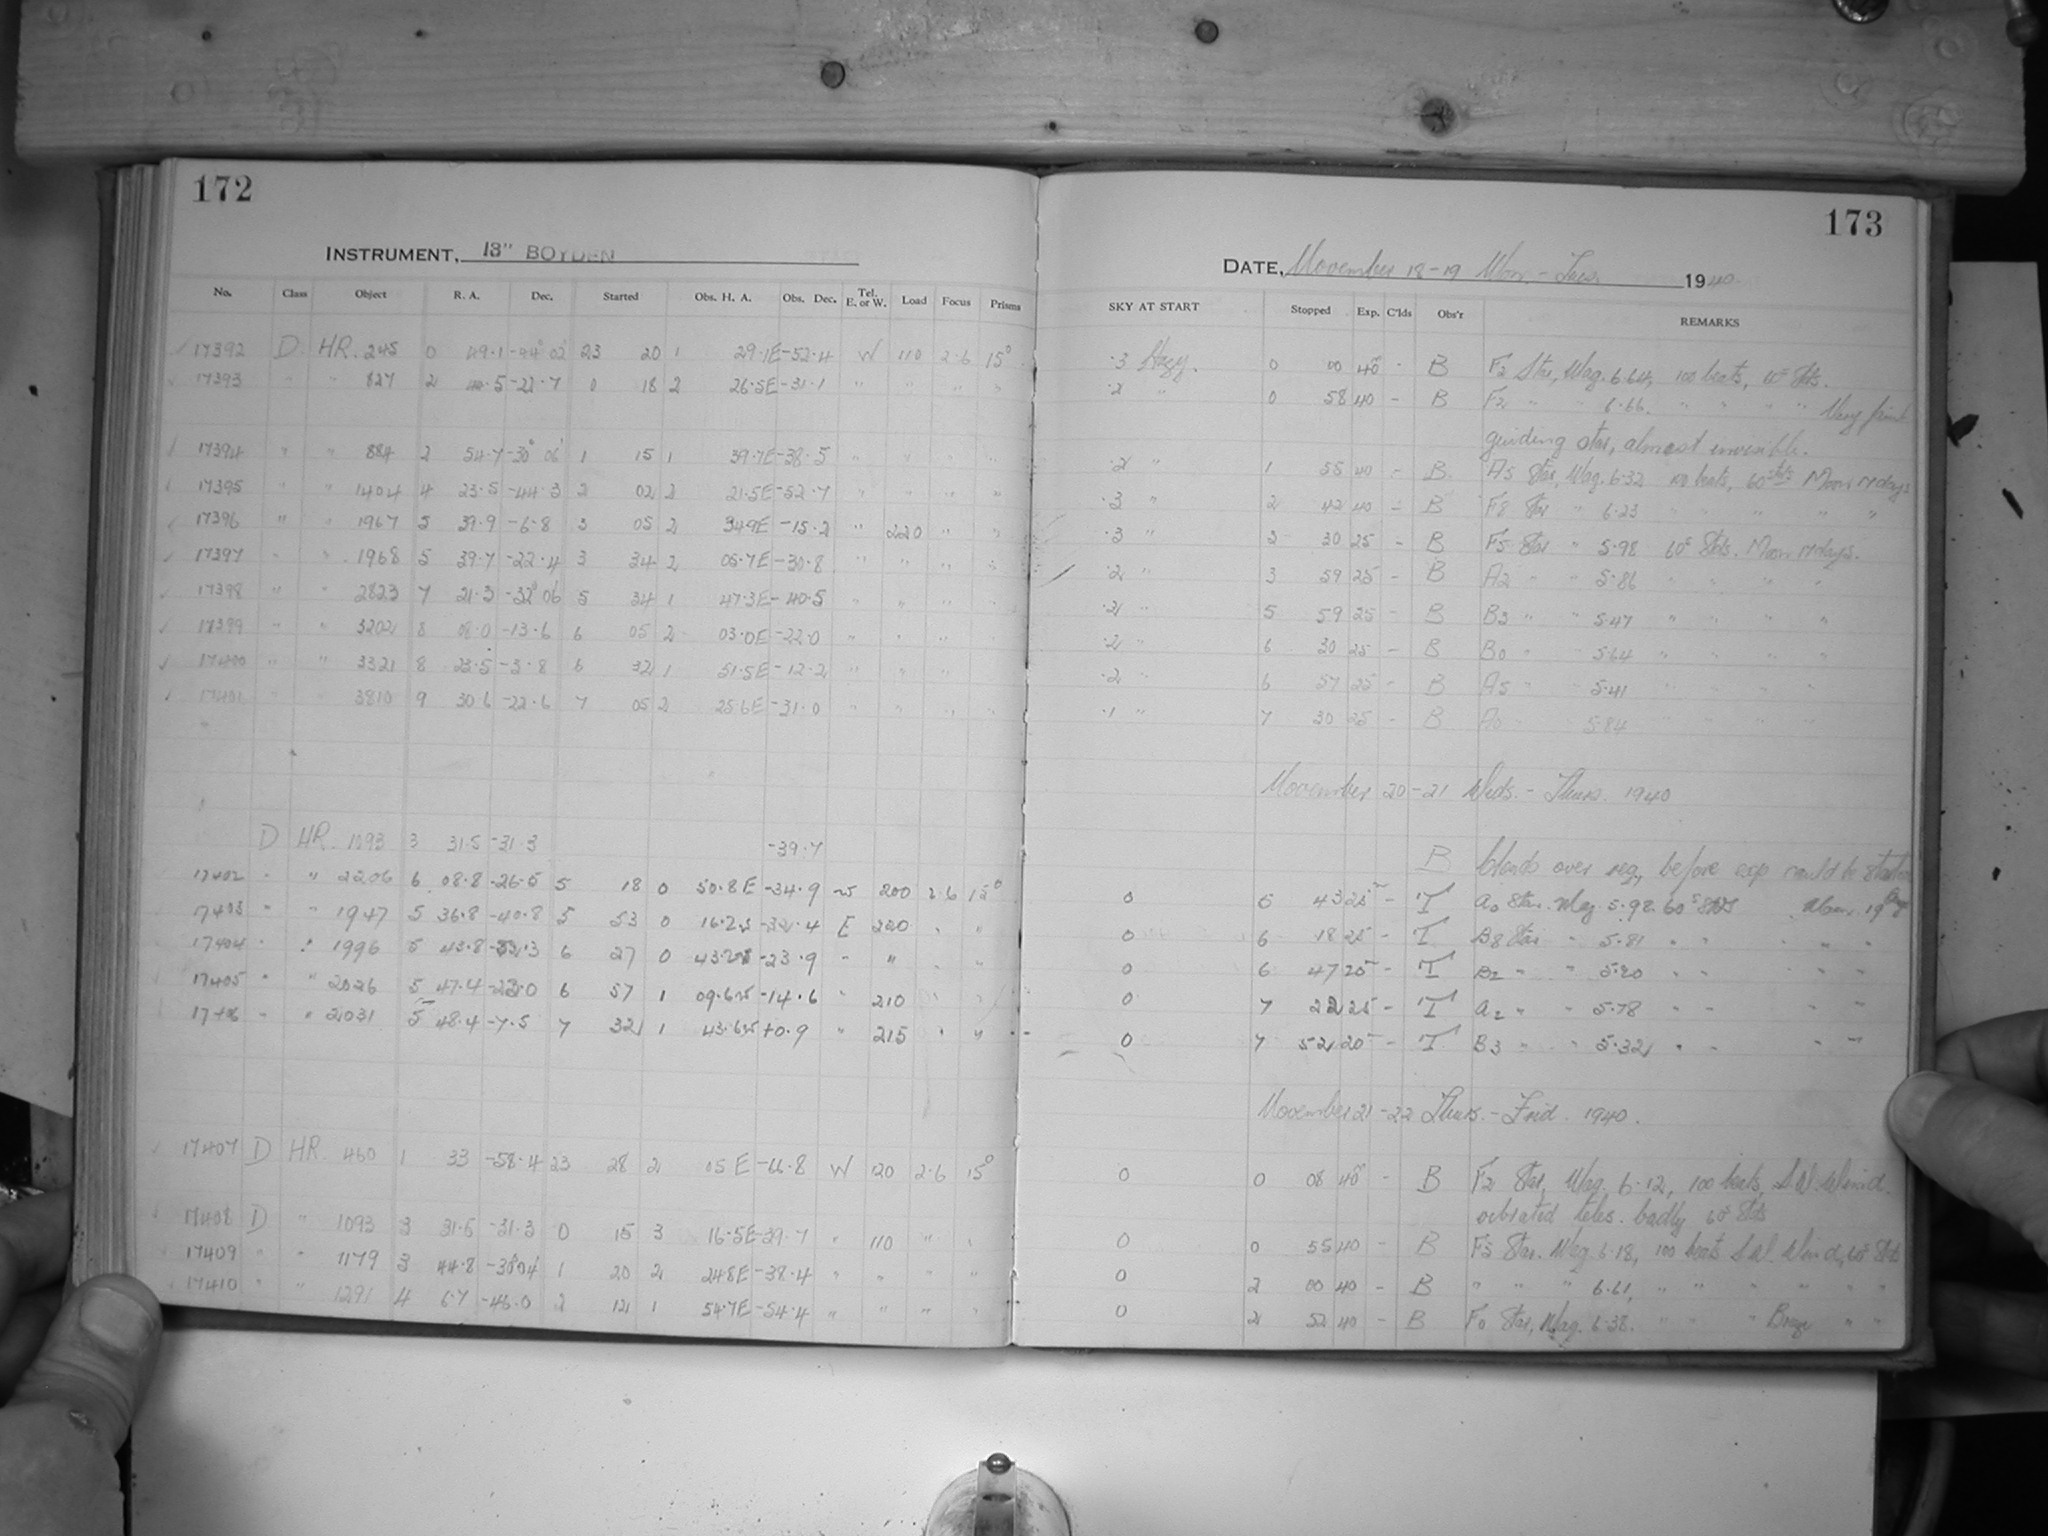 172
INSTRUMENT, 13" BOYDEN
No. Class Object R. A. Dec. Started Obs. H. A. Obs. Dec. Tel. E. or W. Load Focus Prisms
17392 D HR. 245 0 49.1 -44° 02' 23 20 1 29.1E -52.4 W 110 2.6 15°
17393 " " 827 2 .5 -22.7 0 18 2 26.5E -31.1 " " " "
17394 " " 884 2 54.7 -30° 06' 1 15 1 39.7E -38.5 " " " "
17395 " " 1404 4 23.5 -44.3 2 02 2 21.5E -52.7 " " " "
17396 " " 1967 5 39.9 -6.8 3 05 2 34.9E -15.2 " 220 " "
17397 " " 1968 5 39.7 -22.4 3 34 2 05.7E -30.8 " " " "
17398 " " 2823 7 21.3 -32° 06' 5 34 1 47.3E -40.5 " " " "
17399 " " 3202 8 08.0 -13.6 6 05 2 03.0E -22.0 " " " "
17400 " " 3321 8 23.5 -3.8 6 32 1 51.5E -12.2 " " " "
17401 " " 3810 9 30.6 -22.6 7 05 2 25.6E -31.0 " " " "
D HR. 1093 3 31.5 -31.3 -39.7
17402 " " 2206 6 08.8 -26.5 5 18 0 50.8E -34.9 W 200 2.6 15°
17403 " " 1947 5 36.8 -40.8 5 53 0 16.2W -32.4 E 220 " "
17404 " " 1996 5 43.8 6 27 0 -23.9 " " " "
17405 " " 2026 5 47.4 -23.0 6 57 1 09.6W -14.6 " 210
17406 " " 2031 5 48.4 -7.5 7 32 1 43.6W +0.9 " 215 " "
17407 D HR. 460 1 33 -58.4 23 28 2 05E -66.8 W 120 2.6 15°
17408 D " 1093 3 31.5 -31.3 0 15 3 16.5E -39.7 " 110 " "
17409 " " 1179 3 44.8 1 20 2 24.8E -38.4 " " " "
17410 " " 1291 4 6.7 -46.0 2 12 1 54.7E -54.4 " " " "
173
DATE, November 18-19 Mon. - Tues. 1940.
SKY AT START Stopped Exp. C'lds Obs'r REMARKS
.3 Hazy. 0 00 40 - B F2 Star, Mag. 6.64, 100 beats, 60s Stds.
.2 " 0 58 40 - B F2 " " 6.66. " " " " Very faint
guiding star, almost invisible.
.2 " 1 55 40 - B A5 Star, Mag. 6.32 100 beats, 60s Stds Moon 19 days
.3 " 2 42 40 - B F8 Star " 6.23 " " " " "
.3 " 3 30 25 - B F5 Star " 5.98 60s Stds. Moon 19 days.
.2 " 3 59 25 - B A2 " " 5.86 " " " "
.2 " 5 59 25 - B B3 " " 5.47 " " " "
.2 " 6 30 25 - B B0 " " 5.64 " " " "
.2 " 6 57 25 - B A5 " " 5.41 " " " "
.1 " 7 30 25 - B A0 " " 5.84 " " " "
November 20-21 Weds. - Thurs. 1940
B Clouds over reg, before exp could be started
0 5 43 25 - T A0 Star. Mag. 5.92 60s Stds Moon 19 days
0 6 18 25 - T B8 Star " 5.81 " " " "
0 6 47 20 - T B2 " " 5.20 " " " "
0 7 22 25 - T A2 " " 5.78 " " "
0 7 52 20 - T B3 " " 5.32 " " " "
November 21-22 Thurs. - Frid. 1940.
0 0 08 40 - B F2 Star, Mag. 6.12, 100 beats, S.W. Wind.
vibrated teles. badly 60s Stds
0 0 55 40 - B F5 Star. Mag. 6.18, 100 beats S.W. Wind, 60s Stds
0 2 00 40 - B " " " 6.61, " " " " " "
0 2 52 40 - B F0 Star, Mag. 6.38. " " " Breeze " "